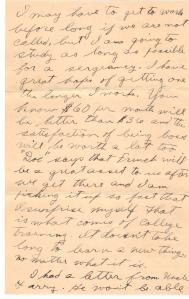 I may have to get to work
before long if we are not
called, but I am going to
study as long as possible
for a sergeancy. I have
great hopes of getting one
the longer I work. You
know $60 per month will
be better than $36 and the
satisfaction of being boss
will be worth a lot too.
"Doc" says that French will
be a great asset to us after
we get there and I am
picking it up so fast that
I surprise myself. That
is what comes of College
training. It doesn't take
long to learn a new thing,
no matter what it is.
I had a letter from
& Harry. He won't be able